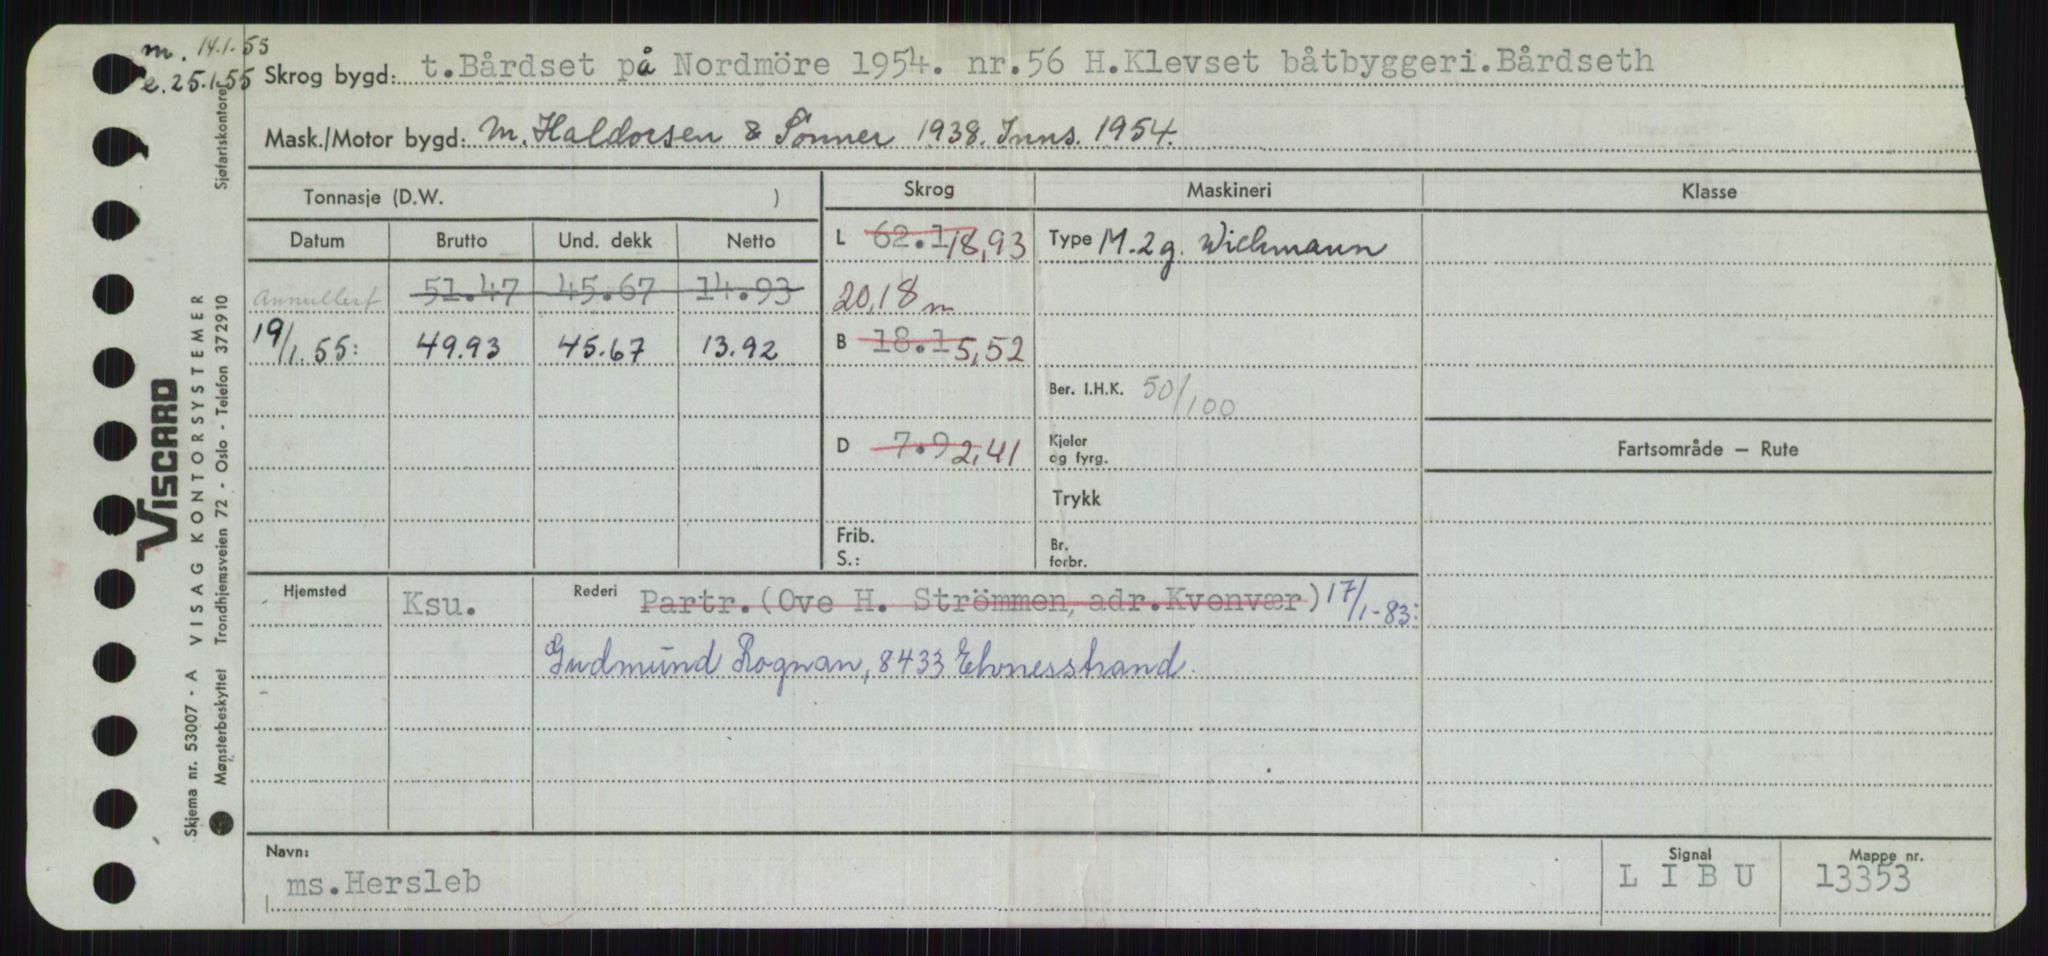 m. 14.1.55
e. 25.1.55
Skrog bygd: t.Bårdset på Nordmöre 1954. nr.56 H.Klevset båtbyggeri.Bårdseth
Mask./Motor bygd: M. Haldorsen & Sønner 1938. Inns. 1954.
Tonnasje (D.W. )
Skrog Maskineri Klasse
Datum Brutto Und. dekk Netto
L 62.1 18,93 Type M. 2g. Wichmann
Annullert 51.47 45.67 14.93 20,18 m
19/1.55: 49.93 45.67 13.92 B 18.1 5,52
Ber. I.H.K. 50/100
D 7.9 2,41 Kjeler og fyrg.
Fartsområde — Rute
Trykk
Frib.
S.:
Br. forbr.
Hjemsted Ksu. Rederi Partr.(Ove H. Strömmen, adr.Kvenvær) 17/1-83:
Gudmund Rognan, 8433 Elvnesstrand.
Navn: ms.Hersleb
Signal L I B U
Mappe nr. 13353
VISCARD
Skjema nr. 53007 - A VISAG KONTORSYSTEMER
Mønsterbeskyttet Trondhjemsveien 72 - Oslo - Telefon 372910 Sjøfartskontoret